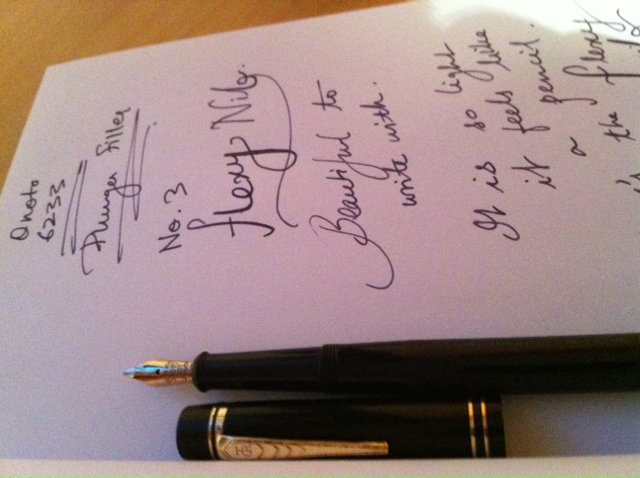 Onoto
6233
Plunger Filler
No. 3
flexy Nib.
Beautiful to
write with.
It is so light
it feels like
a pencil.
is the flexy